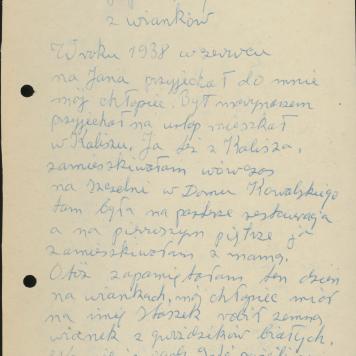 z wianków
W roku 1938 w czerwcu
na Jana przyjechał do mnie
mój chłopiec. Był marynarzem
przyjechał na urlop mieszkał
w Kaliszu. Ja też z Kalisza,
zamieszkiwałam wówczas
na w Domu Kowalskiego
tam była na parterze restauracja
a na pierwszym piętrze ja
zamieszkiwałam z mamą.
Otóż zapamiętałam ten dzień
na wiankach, mój chłopiec miał
na imię Staszek robił zemną
wianek z gwździków białych.